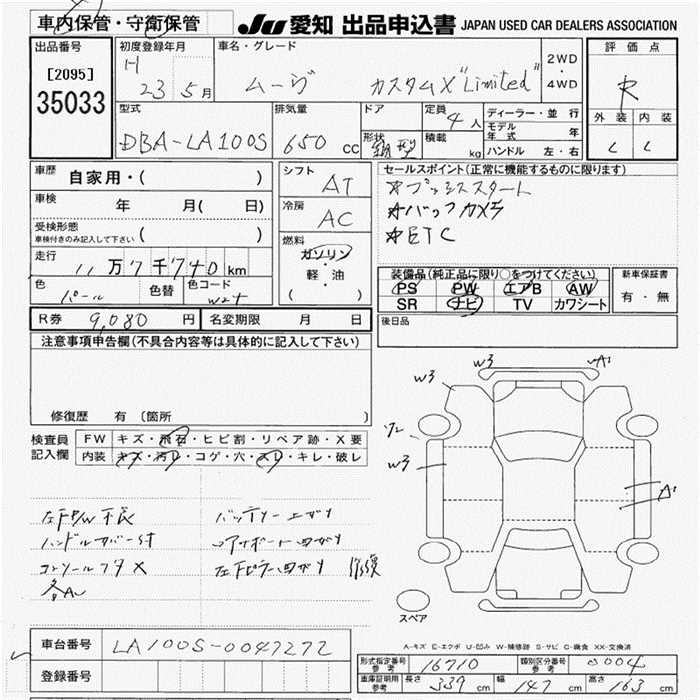 車内保管・守衛保管
JU 愛知 出品申込書 JAPAN USED CAR DEALERS ASSOCIATION
出品番号
[2095]
35033
初度登録年月
H 23 5月
車名・グレード
ムーヴ カスタムX "Limited"
2WD
・
4WD
評価点
R
外装 内装
型式
DBA-LA100S
排気量
650 cc
ドア
形状
箱型
定員 4人
積載 kg
ディーラー・並行
モデル年式 年
ハンドル 左・右
車歴 自家用・( )
車検 年 月( 日)
受検形態
車検付きのみ記入して下さい ( )
走行 11万7千740km
色 パール 色替
色コード W24
シフト AT
冷房 AC
燃料
ガソリン
・
軽・油
( )
セールスポイント(正常に機能するものに限ります)
☆プッシュスタート
☆バックカメラ
☆ETC
装備品(純正品に限り○をつけてください)
PS PW エアB AW
SR ナビ TV カワシート
新車保証書
有・無
後日品
R券 9,080 円 名変期限 月 日
注意事項申告欄(不具合内容等は具体的に記入して下さい)
修復歴 有(箇所 )
検査員記入欄
FW キズ・飛石・ヒビ割・リペア跡・X要
内装 キズ・汚レ・コゲ・穴・スレ・キレ・破レ
左FP/W不良
ハンドルカバー付
コンソールフタX
各A
バッテリー上ガリ
コアサポート曲ガリ
左Fピラー曲ガリ 修復
W3
W3
A1
W3
A1
スペア
A-キズ E-エクボ U-凹み W-補修跡 S-サビ C-腐食 XX-交換済
車台番号 LA100S-0047272
登録番号
型式指定番号 参考 16710
類別区分番号 参考 0004
車庫証明用 参考 長さ 339 cm 幅 147 cm 高さ 163 cm